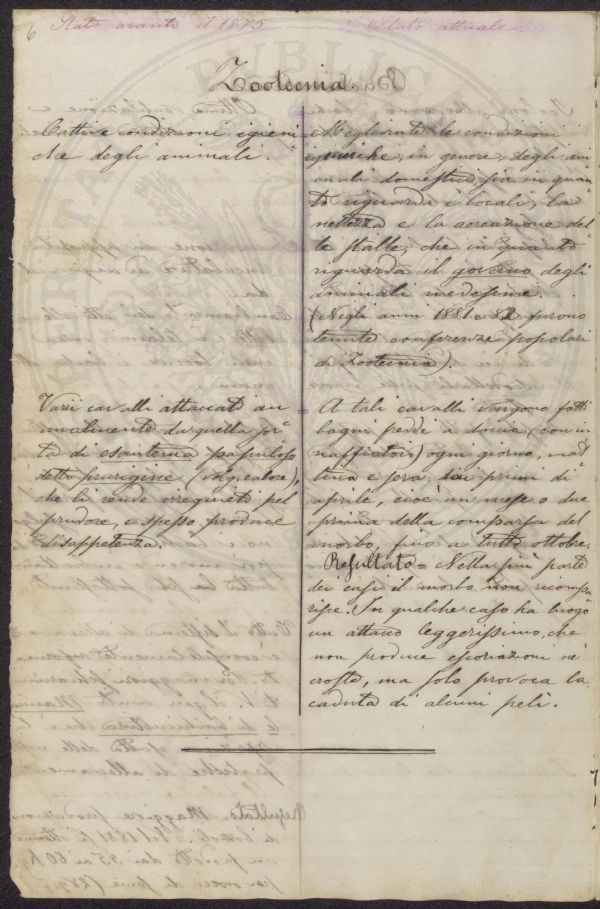 6 Stato avanti il 1875
Stato attuale.
Zootecnia.
Cattive condizioni igieni
che degli animali.
Migliorate le condizioni
igieniche, in genere, degli ani
mali domestici, sia in quan
to riguarda i locali, la
nettezza e la aereazione del
le stalle, che in quanto
riguarda il governo degli
animali medesimi.
(Negli anni 1881 e 82 furono
tenute conferenze popolari
di Zootecnia).
Varii cavalli attaccati an
nualmente da quella for
ta di esantema papuloso
detto prurigine
che li rende irrequieti pel
prudore, e spesso produce
disappetenza.
A tali cavalli vengono fatti
bagni freddi a doccia (con in
naffiatoio) ogni giorno, mat
tina e sera, dai primi di
aprile, cioè un mese o due
prima della comparsa del
morbo, fino a tutto ottobre.
Resultato = Nella più parte
dei casi il morbo non ricompa
risce. In qualche caso ha luogo
un attacco leggerissimo, che
non produce escoriazioni nè
croste, ma solo provoca la
caduta di alcuni peli.